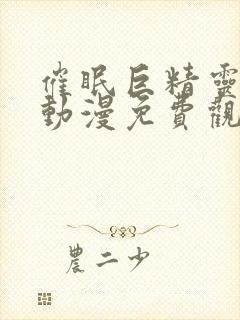 催眠巨精靈
動漫免費觀
農二少